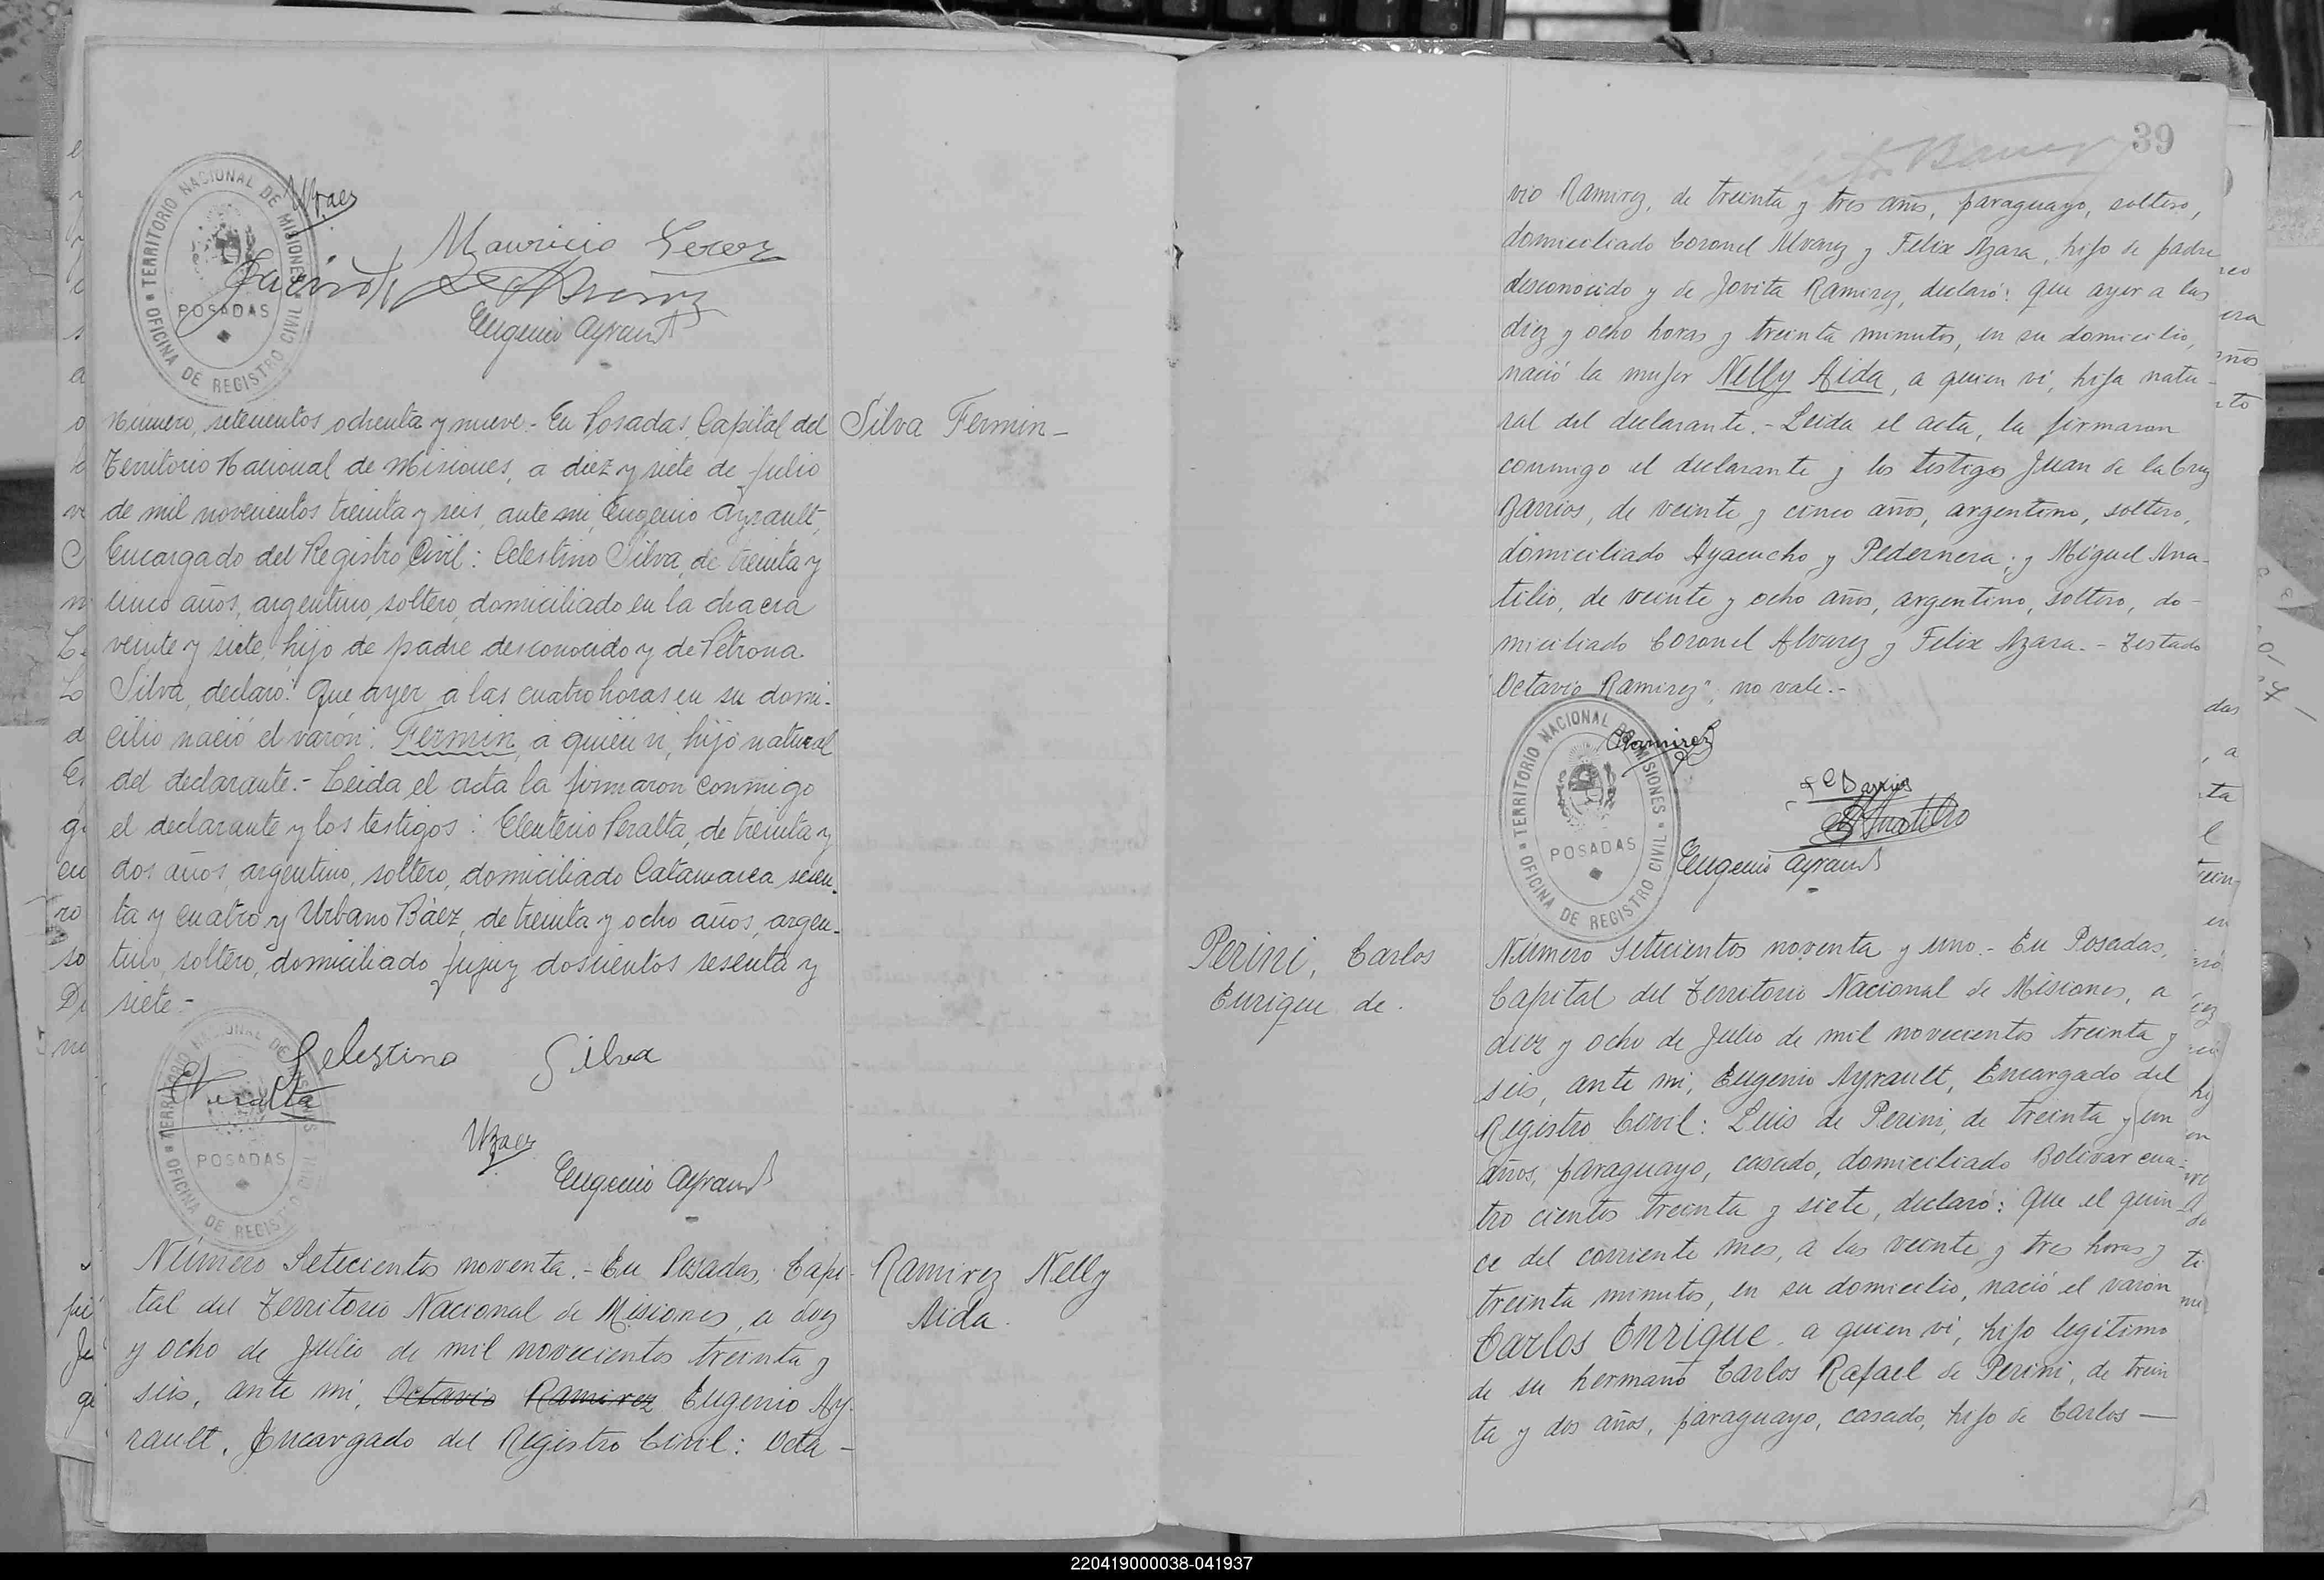 TERRITORIO NACIONAL DE MISIONES
POSADAS
OFICINA DE REGISTRO CIVIL
UBaez
Mauricio
Eugenio Ayrault
Número, setecientos ochenta y nueve.- En Posadas, Capital del
Territorio Nacional de Misiones, a diez y siete de Julio
de mil novecientos treinta y seis, ante mi, Eugenio Ayrault,
Encargado del Registro Civil: Celestino Silva, de treinta y
cinco años, argentino, soltero, domiciliado en la chacra
veinte y siete, hijo de padre desconocido y de Petrona
Silva, declaró: Que ayer a las cuatro horas en su domi-
cilio nació el varón: Fermin, a quién vi, hijo natural
del declarante.- Leida el acta la firmaron conmigo
el declarante y los testigos: Eleuterio Peralta, de treinta y
dos años, argentino, soltero, domiciliado Catamarca sesen-
ta y cuatro y Urbano Báez, de treinta y ocho años, argen-
tino, soltero, domiciliado Jujuy doscientos sesenta y
siete.-
Silva Fermin-
TERRITORIO NACIONAL DE MISIONES
POSADAS
OFICINA DE REGISTRO CIVIL
Celestino Silva
EPeralta
UBaez
Eugenio Ayrault
Número Setecientos noventa.- En Posadas, Capi-
tal del Territorio Nacional de Misiones, a diez
y ocho de Julio de mil novecientos treinta y
seis, ante mi, Octavio Ramirez Eugenio Ay-
rault, Encargado del Registro Civil: Octa-
Ramirez Nelly
Aida.
39
vio Ramirez, de treinta y tres años, paraguayo, soltero,
domiciliado Coronel Alvarez y Felix Azara, hijo de padre
desconocido y de Jovita Ramirez, declaró: Que ayer a las
diez y ocho horas y treinta minutos, en su domicilio,
nació la mujer Nelly Aida, a quien vi, hija natu-
ral del declarante.- Leida el acta, la firmaron
conmigo el declarante y los testigos Juan de la Cruz
Barrios, de veinte y cinco años, argentino, soltero,
domiciliado Ayacucho y Pedernera; y Miguel Ana-
tilio, de veinte y ocho años, argentino, soltero, do-
miciliado Coronel Alvarez y Felix Azara.- Testado
"Octavio Ramirez", no vale.-
TERRITORIO NACIONAL DE MISIONES
POSADAS
OFICINA DE REGISTRO CIVIL
ORamirez
Barrios
Eugenio Ayrault
Perini, Carlos
Enrique de.
Número Setecientos noventa y uno.- En Posadas,
Capital del Territorio Nacional de Misiones, a
diez y ocho de Julio de mil novecientos treinta y
seis, ante mi, Eugenio Ayrault, Encargado del
Registro Civil: Luis de Perini, de treinta y un
años, paraguayo, casado, domiciliado Bolivar cua-
tro cientos treinta y siete, declaró: Que el quin-
ce del corriente mes, a las veinte y tres horas y
treinta minutos, en su domicilio, nació el varón
Carlos Enrique, a quien vi, hijo legitimo
de su hermano Carlos Rafael de Perini, de trein
ta y dos años, paraguayo, casado, hijo de Carlos-
220419000038-041937